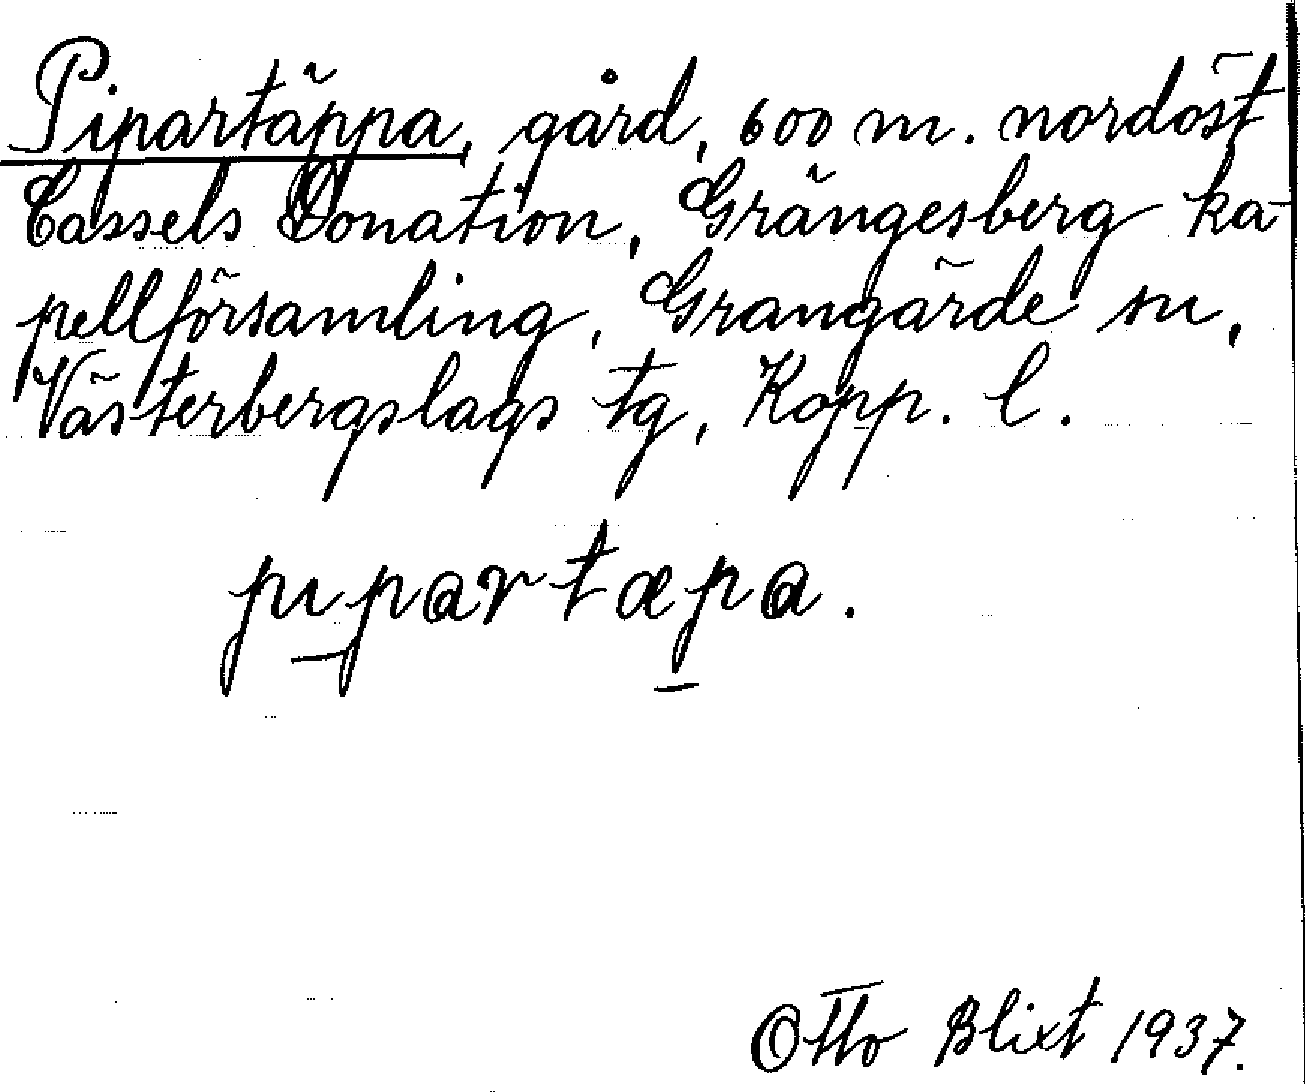 Pipartäppa, gård, 600 m. nordöst
Cassels Donation, Grängesberg ka-
pellförsamling, Grangärde sn,
Västerbergslags tg, Kopp. l.
pıpartæpa.
Otto Blixt 1937.